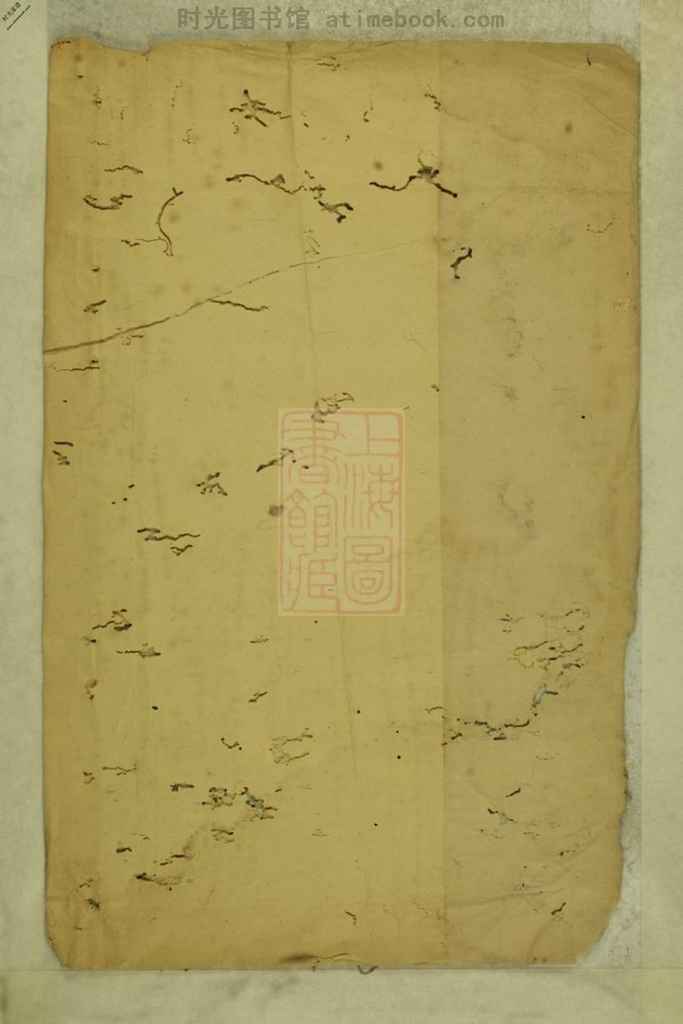 时光图书馆 atimebook.com
上海圖
書館藏